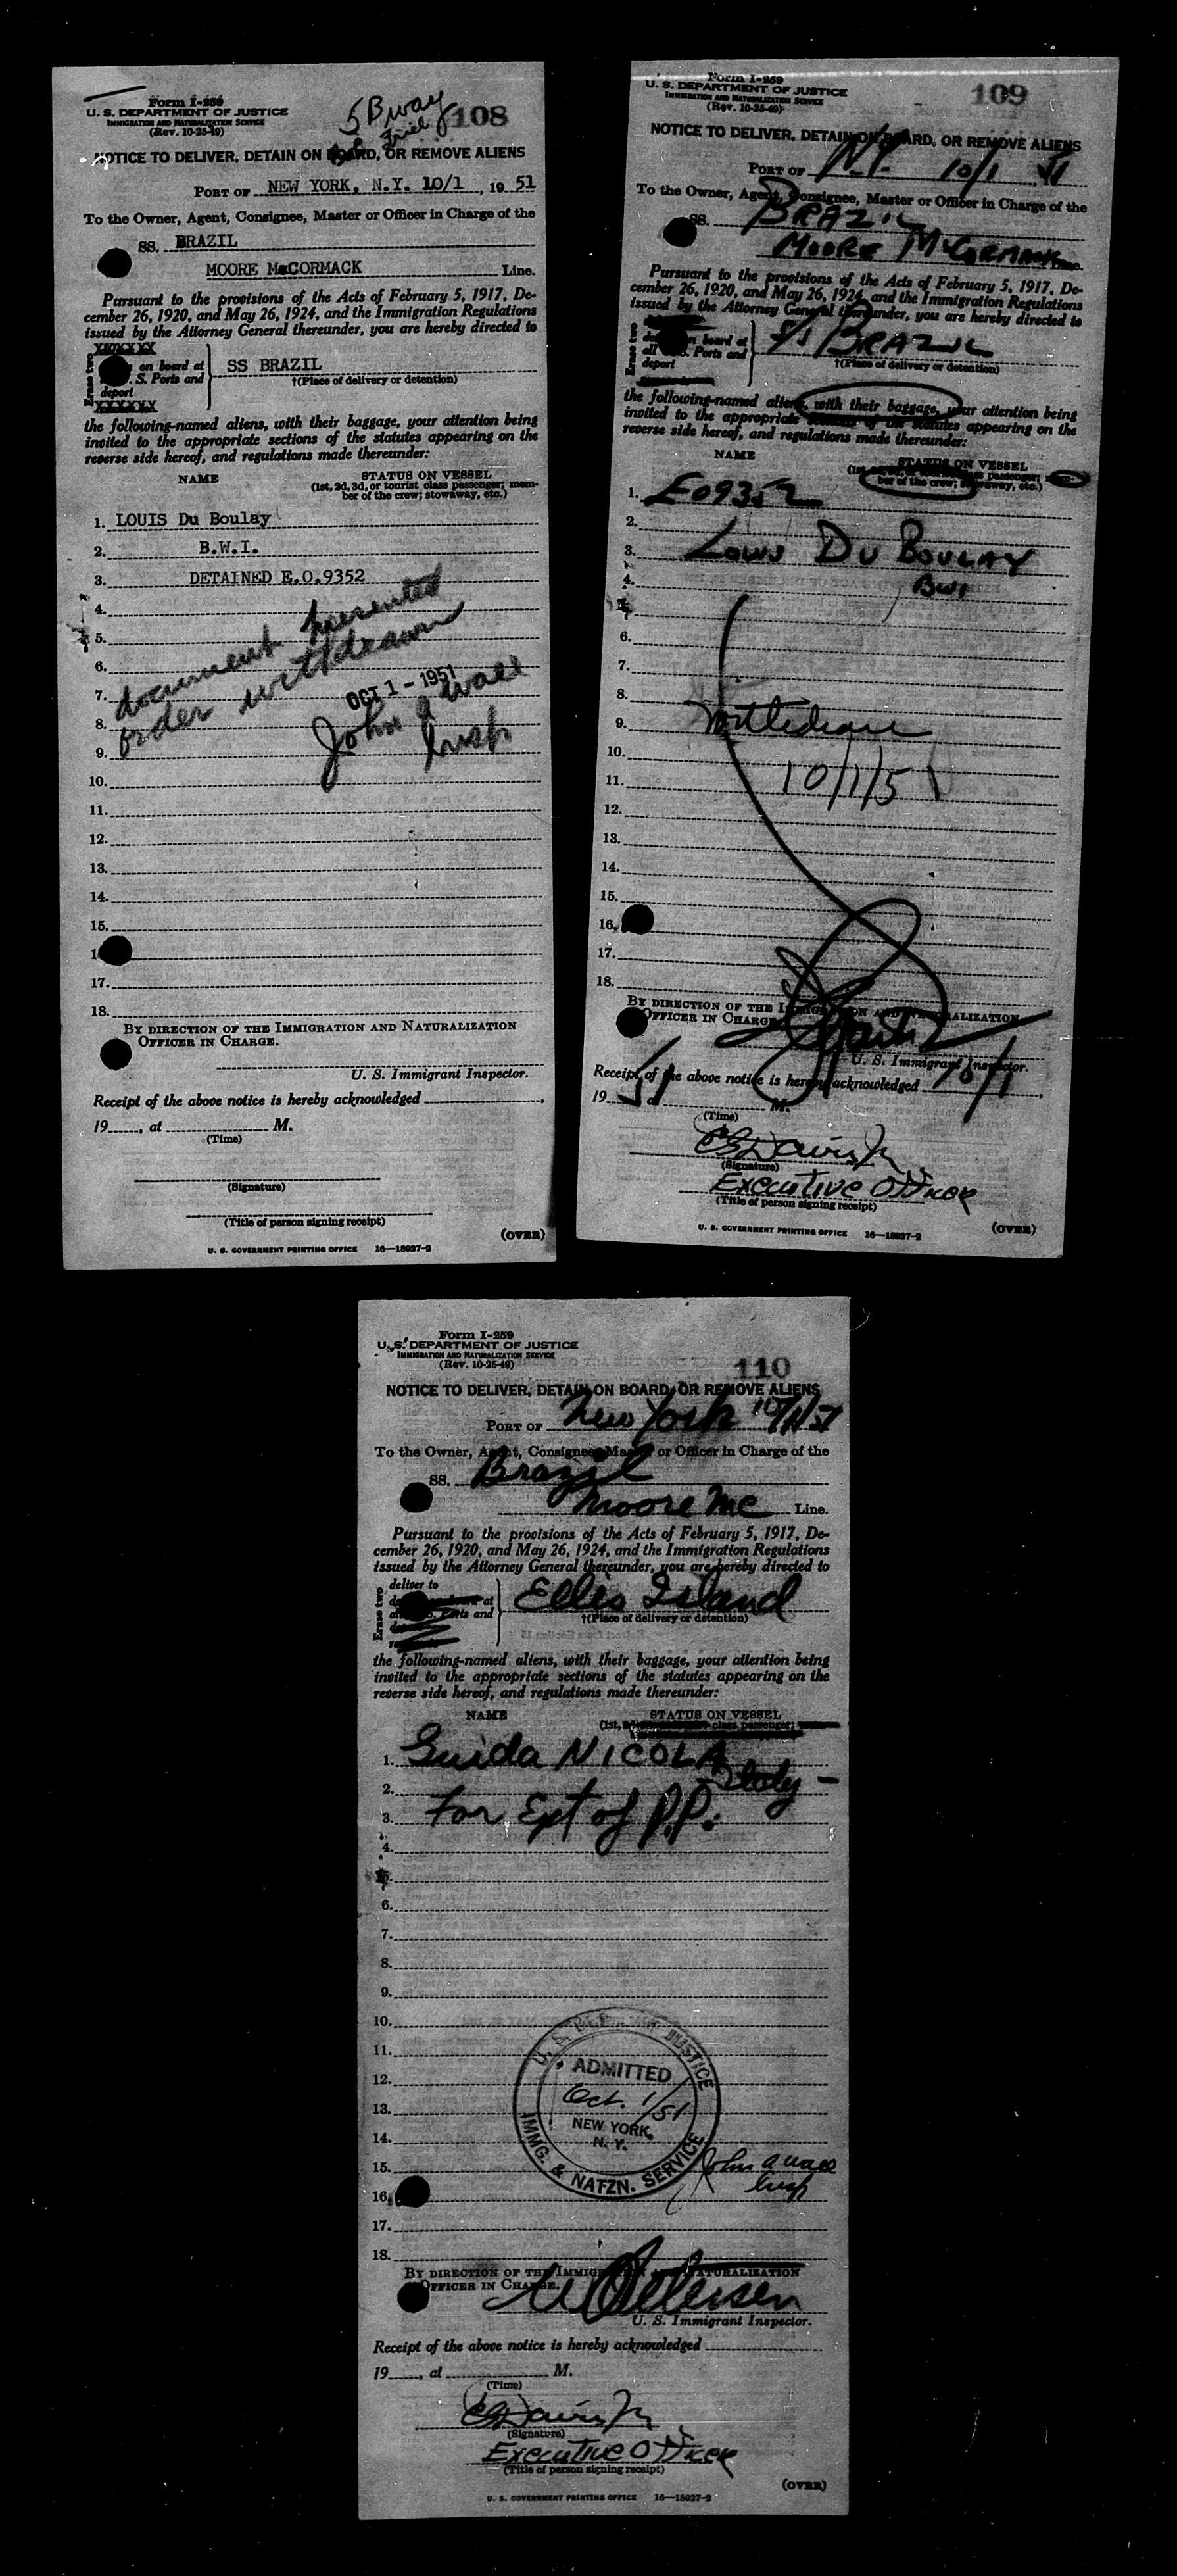 Form I-259
U. S. DEPARTMENT OF JUSTICE
IMMIGRATION AND NATURALIZATION SERVICE
(Rev. 10-25-49)
5 Bway
108
NOTICE TO DELIVER, DETAIN ON BOARD, OR REMOVE ALIENS
PORT OF NEW YORK, N.Y. 10/1, 19 51
To the Owner, Agent, Consignee, Master or Officer in Charge of the
SS. BRAZIL
MOORE McCORMACK Line.
Pursuant to the provisions of the Acts of February 5, 1917, De-
cember 26, 1920, and May 26, 1924, and the Immigration Regulations
issued by the Attorney General thereunder, you are hereby directed to
Erase two
XXXXXXX
on board at
S. Ports and
deport
XXXXXX
SS BRAZIL
†(Place of delivery or detention)
the following-named aliens, with their baggage, your attention being
invited to the appropriate sections of the statutes appearing on the
reverse side hereof, and regulations made thereunder:
NAME
STATUS ON VESSEL
(1st, 2d, 3d, or tourist class passenger; mem-
ber of the crew; stowaway, etc.)
1. LOUIS Du Boulay
2. B.W.I.
3. DETAINED E.O.9352
4.
5.
6.
7.
8.
9.
document presented
order withdrawn
OCT 1 - 1951
John a Wall
Insp
10.
11.
12.
13.
14.
15.
1
17.
18.
BY DIRECTION OF THE IMMIGRATION AND NATURALIZATION
OFFICER IN CHARGE.
U. S. Immigrant Inspector.
Receipt of the above notice is hereby acknowledged
19 , at M.
(Time)
(Signature)
(Title of person signing receipt)
(OVER)
U. S. GOVERNMENT PRINTING OFFICE 16—18927-2
Form I-259
U. S. DEPARTMENT OF JUSTICE
IMMIGRATION AND NATURALIZATION SERVICE
(Rev. 10-25-49)
109
NOTICE TO DELIVER, DETAIN ON BOARD, OR REMOVE ALIENS
PORT OF N.Y. 10/1 51
To the Owner, Agent, Consignee, Master or Officer in Charge of the
SS. BRAZIL
MOORE McCORMACK
Pursuant to the provisions of the Acts of February 5, 1917, De-
cember 26, 1920, and May 26, 1924, and the Immigration Regulations
issued by the Attorney General thereunder, you are hereby directed to
Erase two
on board at
all S. Ports and
deport
SS BRAZIL
†(Place of delivery or detention)
the following-named aliens, with their baggage, your attention being
invited to the appropriate sections of the statutes appearing on the
reverse side hereof, and regulations made thereunder:
NAME
STATUS ON VESSEL
(1st, class passenger; mem-
ber of the crew; stowaway, etc.)
1. EO9352
2.
3. Louis Du Boulay
4. BWI
6.
7.
8.
9. Withdrawn
10. 10/1/51
11.
12.
13.
14.
15.
16.
17.
18.
BY DIRECTION OF THE IMMIGRATION AND NATURALIZATION
OFFICER IN CHARGE
U. S. Immigrant Inspector.
Receipt of the above notice is hereby acknowledged 10/1,
19 51 M.
(Time)
CG Davis Jr
(Signature)
Executive Officer
(Title of person signing receipt)
(OVER)
U. S. GOVERNMENT PRINTING OFFICE 16—18927-2
Form I-259
U. S. DEPARTMENT OF JUSTICE
IMMIGRATION AND NATURALIZATION SERVICE
(Rev. 10-25-49)
110
NOTICE TO DELIVER, DETAIN ON BOARD, OR REMOVE ALIENS
PORT OF New York 10/1/51
To the Owner, Agent, Consignee, Master or Officer in Charge of the
SS. Brazil
Moore Mc Line.
Pursuant to the provisions of the Acts of February 5, 1917, De-
cember 26, 1920, and May 26, 1924, and the Immigration Regulations
issued by the Attorney General thereunder, you are hereby directed to
Erase two
deliver to
at
Ports and
Ellis Island
†(Place of delivery or detention)
the following-named aliens, with their baggage, your attention being
invited to the appropriate sections of the statutes appearing on the
reverse side hereof, and regulations made thereunder:
NAME
STATUS ON VESSEL
(1st, class passenger;
1. Guida NICOLA
2. Italy -
3. For Ext of P.P.
4.
6.
7.
8.
9.
10.
11.
12.
13.
14.
15.
16.
17.
18.
U. S. DEPT. OF JUSTICE
ADMITTED
Oct. 1/51
NEW YORK,
N. Y.
IMMG. & NATZN. SERVICE
John a Wall
Insp
BY DIRECTION OF THE IMMIGRATION AND NATURALIZATION
OFFICER IN CHARGE.
Petersen
U. S. Immigrant Inspector.
Receipt of the above notice is hereby acknowledged
19 , at M.
(Time)
CG Davis Jr
(Signature)
Executive Officer
(Title of person signing receipt)
(OVER)
U. S. GOVERNMENT PRINTING OFFICE 16—18927-2